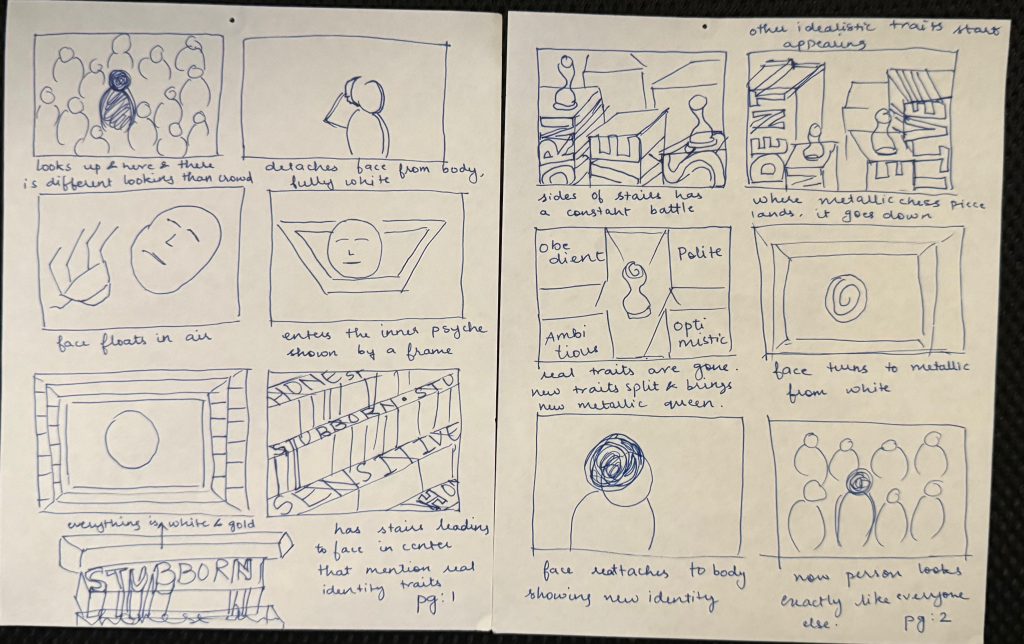 looks up & here & there
is different looking than crowd
detaches face from body,
fully white
face floats in air
enters the inner psyche
shown by a frame
everything is white & gold
HONEST
STUBBORN · STU
SENSITIVE
HO
STUBBORN
has stairs leading
to face in center
that mention real
identity traits
pg:1
ORN
VE
S
sides of stairs has
a constant battle
other idealistic traits start
appearing
DENT
E
TIVE
where metallic chess piece
lands, it goes down
Obe
dient
Polite
Ambi
tious
Opti
mistic
real traits are gone.
new traits split & brings
new metallic queen.
face turns to metallic
from white
face reattaches to body
showing new identity
now person looks
exactly like everyone
else.
pg:2